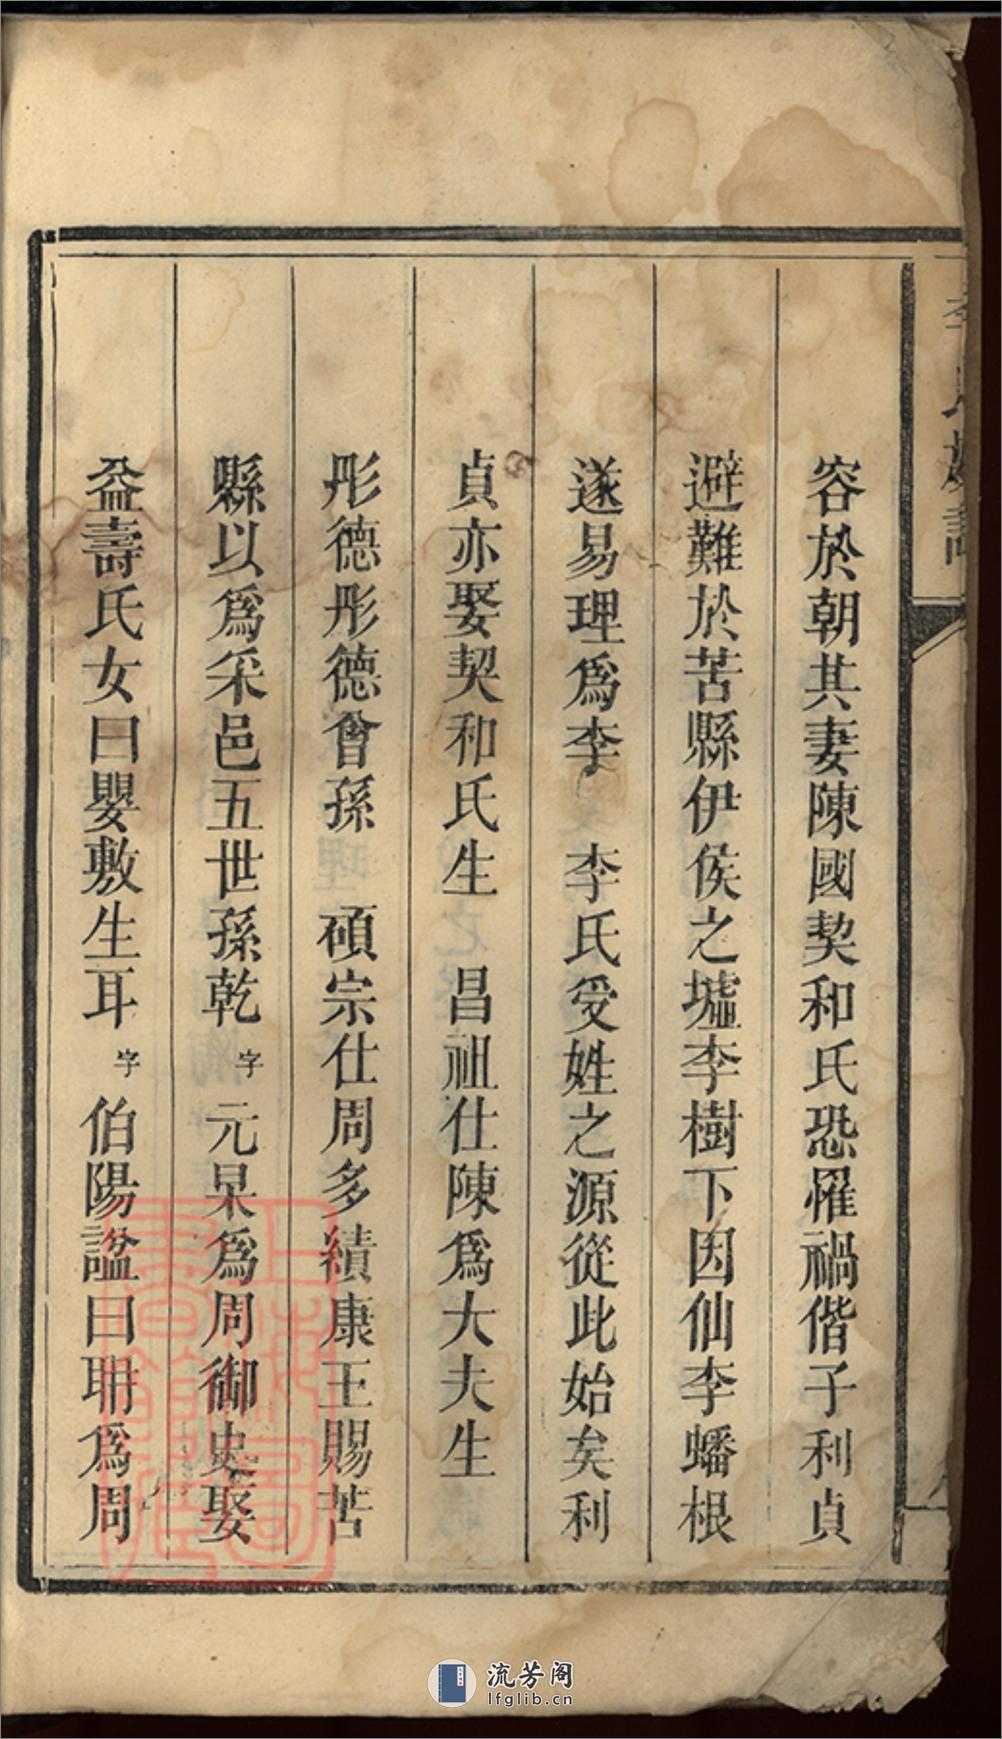 容於朝其妻陳國契和氏恐罹禍偕子利貞
避難於苦縣伊侯之墟李樹下因仙李蟠根
遂易理爲李　李氏受姓之源從此始矣利
貞亦娶契和氏生　昌祖仕陳爲大夫生
彤德彤德曾孫　碩宗仕周多績康王賜苦
縣以爲采邑五世孫乾字元杲爲周御史娶
益壽氏女曰嬰敷生耳字伯陽諡曰聃爲周
流芳阁
lfglib.cn